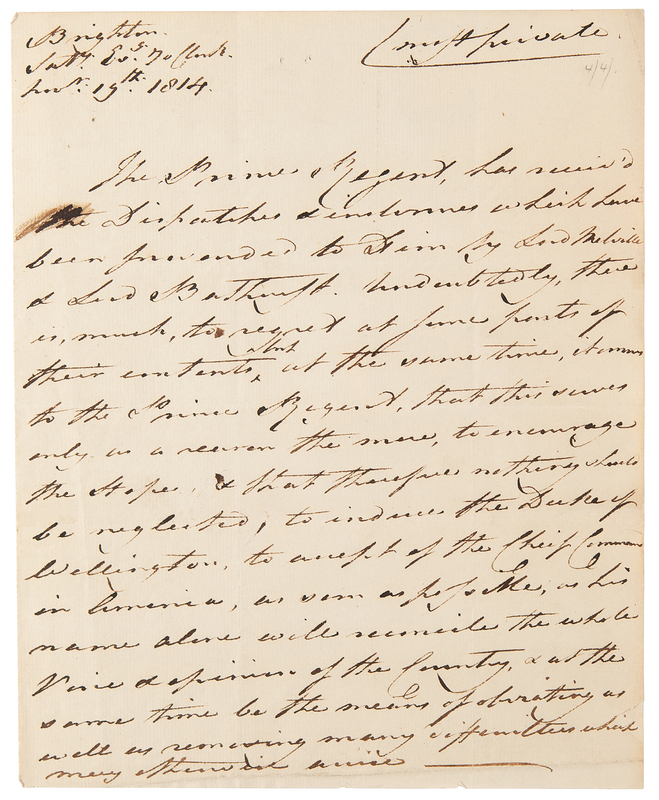 Brighton.
Saty. Evg. 7 o Clock.
Novr. 19th. 1814.
(most private.
4/4/.
The Prince Regent, has receiv'd
the Dispatches & inclosures which have
been forwarded to Him by Lord Melville
& Lord Bathurst. Undoubtedly, there
is, much, to regret at some parts of
their contents, albeit
at the same time, it occurs
to the Prince Regent, that this serves
only as a reason the more, to encourage
the Hope, & that therefore nothing should
be neglected, to induce the Duke of
Wellington, to accept of the Chief Command
in America, as soon as possible, as his
name alone will reconcile the whole
Voice & opinion of the Country, & at the
same time be the means of obviating as
well as removing many difficulties which
may otherwise arise